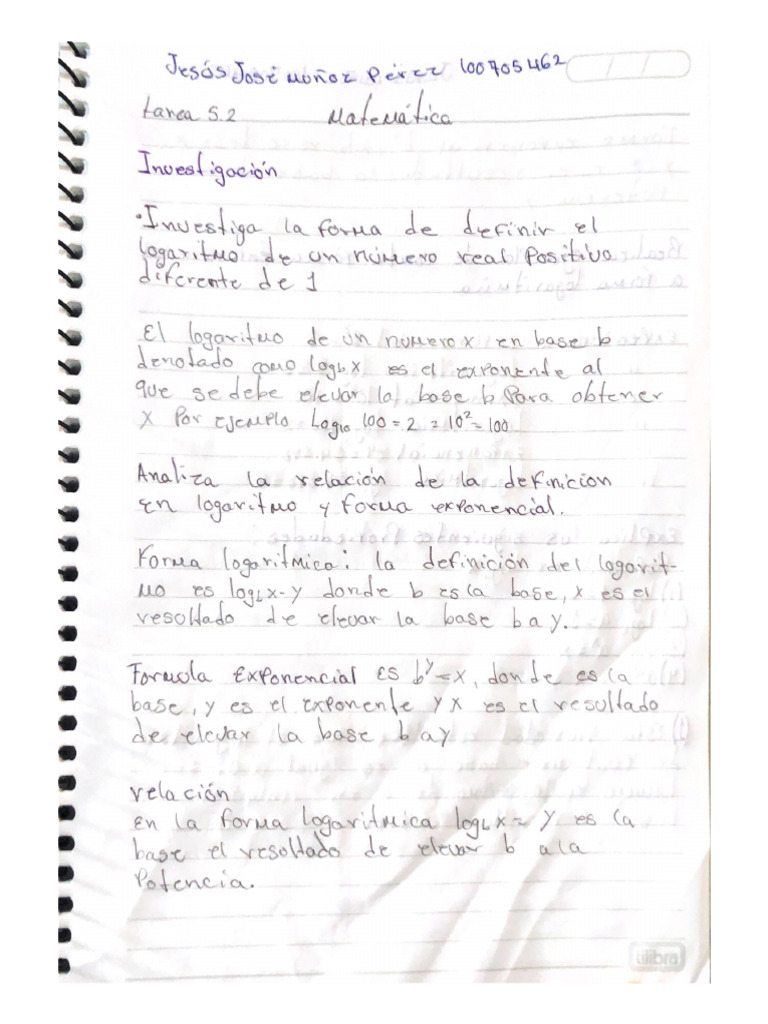 Jesús José Muñoz Pérez 100705462
tarea 5.2 Matemática
Investigación
• Investiga la forma de definir el
logaritmo de un número real positivo
diferente de 1
El logaritmo de un numero x en base b
denotado como logb x es el exponente al
que se debe elevar la base b para obtener
x por ejemplo Log10 100 = 2 = 10² = 100
Analiza la relación de la definicion
en logaritmo y forma exponencial.
Forma logaritmica: la definición del logarit-
mo es logb x - y donde b es la base, x es el
resoltado de elevar la base b a y.
Formula exponencial es b^y = x, donde es la
base, y es el exponente y x es el resultado
de elevar la base b a y
relación
en la forma logaritmica logb x = y es la
base el resoltado de elevar b a la
potencia.
tilibra